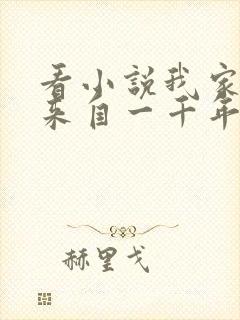 看小說我家
来自一千年
赫里戈